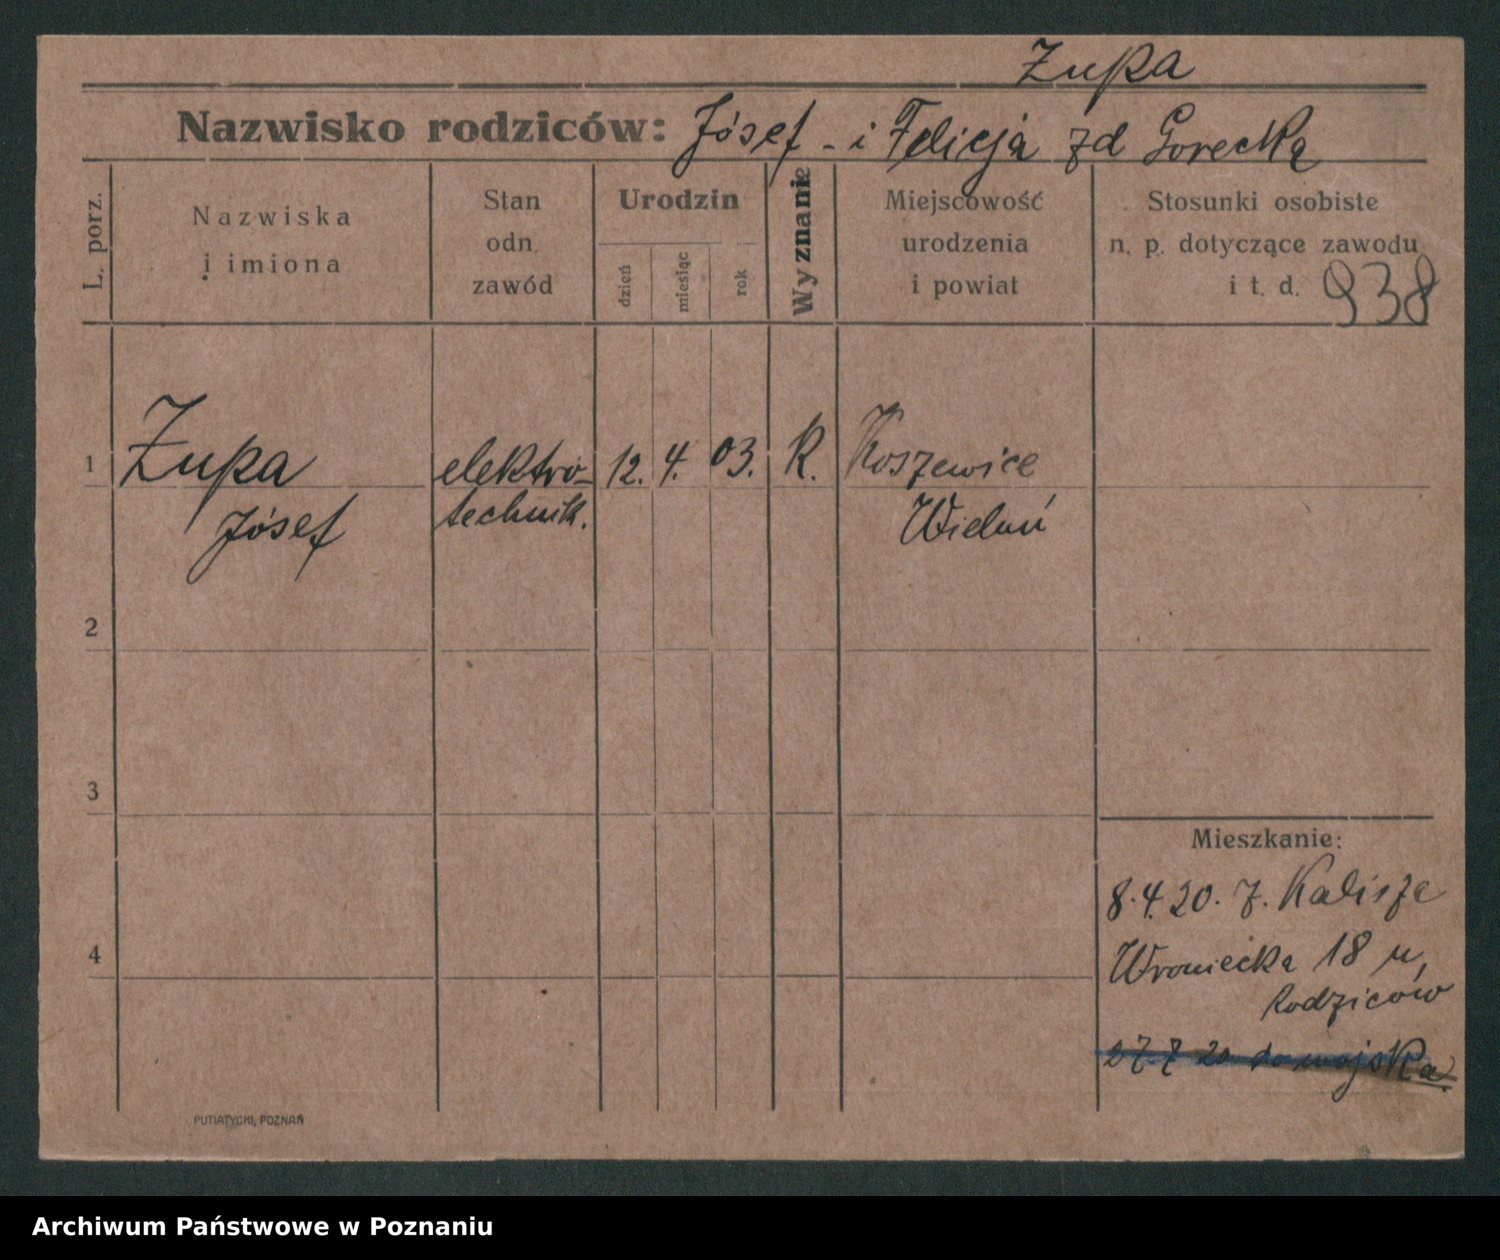 Zupa
Nazwisko rodziców: Józef - i Felicja zd Gorecka
L. porz.
Nazwiska
i imiona
Stan
odn.
zawód
Urodzin
dzień
miesiąc
rok
Wyznanie
Miejscowość
urodzenia
i powiat
Stosunki osobiste
n. p. dotyczące zawodu
i t. d. 938
1 Zupa elektro- 12. 4. 03. R. Koszewice
Józef technik. Wieluń
2
3
4
Mieszkanie:
8.4.20. z. Kalisza
Wroniecka 18 u,
Rodziców
27 7 20 do wojska
PUTIATYCKI, POZNAŃ
Archiwum Państwowe w Poznaniu